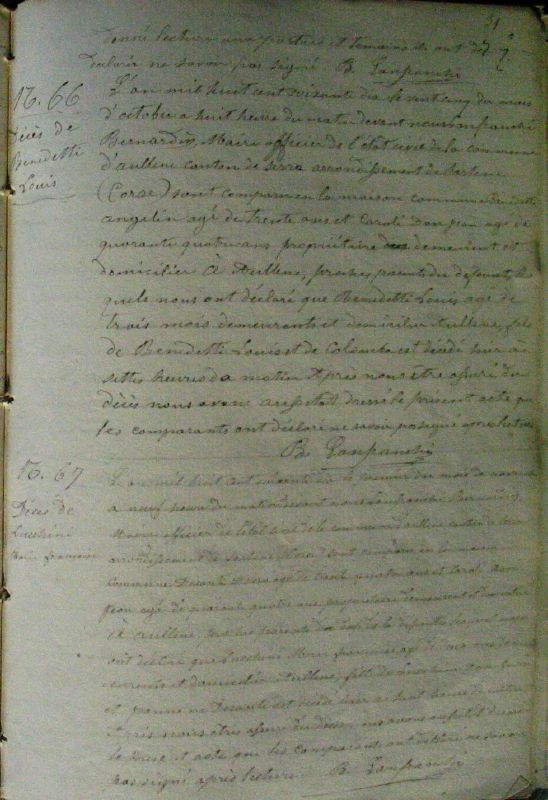 31
donné lecture aux parties et temoins ils ont dit
déclarir ne savoir pas signé B. Lanfranchi
N. 66
Décès de
Benedetti
Louis
L'an mil huit cent soixante dix le vent cinq du mois
d'octobre a huit heure du matin devant nous Lanfranchi
Bernardin, Maire officier de l'état civil de la commune
d'aullene canton de Serra arrondissement de Sartene
(Corse) sont comparu en la maison commune Benedetti
angelin agé de trente ans et Caroli Don jean agé de
quarante quatre ans propriétaire demeurent et
domicilier à Aullene, proches parents du defunt, les
quels nous ont déclaré que Benedetti Louis agé de
trois mois demeurants et domicilier Aullene, fils
de Benedetti Louis et de Colomba est décédé hier à
settes heures da matin Après nous être assuré du
décès nous avons aussitot dressé le present acte que
les comparants ont déclaré ne savoir pas signé après lecture
B. Lanfranchi
N. 67
Décès de
Lucchini
Marie françoise
L'an mil huit cent soixante dix le premier du mois de novembre
a neuf heure du matin devant nous Lanfranchi Bernardin,
Maire officier de l'état civil de la commune d'aullene canton de Serra
arrondissement de Sartene (Corse) sont comparu en la maison
commune agé de trente quatre ans et Caroli Don
jean agé de quarante quatre ans propriétaire demeurent et domicilier
à Aullene, proches parents de la defunte lesquels nous
ont déclaré que Lucchini Marie françoise agé de
et domicilier Aullene, fille de Lucchini
et est décédé hier a huit heure du matin
Après nous être assuré du décès nous avons aussitot dressé
le present acte que les comparants ont déclaré ne savoir
pas signé après lecture B. Lanfranchi